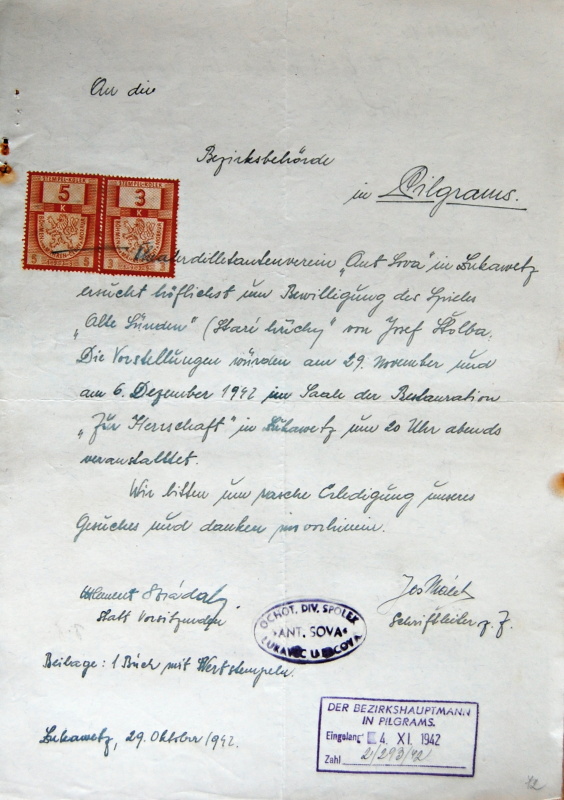 An die
Bezirksbehörde
in Pilgrams.
STEMPEL-KOLEK STEMPEL-KOLEK
5 3
K K
5 5 3 3
Theaterdilletantenverein „Ant Sova" in Lukawetz
ersucht höflichst um Bewilligung des Spieles
„Alte Sünden" (Staré hříchy) von Josef Štolba.
Die Vorstellungen würden am 29. November und
am 6. Dezember 1942 im Saale der Restauration
„Zur Herrschaft" in Lukawetz um 20 Uhr abends
veranstalltet.
Wir bitten um rasche Erledigung unseres
Gesuches und danken im vorhinein.
Statt Vorsitzenden
Schriftleiter z. Z.
OCHOT. DIV. SPOLEK
„ANT. SOVA"
LUKAVEC U PACOVA
Beilage: 1 Buch mit Wertstempeln.
Lukawetz, 29. Oktober 1942.
DER BEZIRKSHAUPTMANN
IN PILGRAMS.
Eingelangt 4. XI. 1942
Zahl 2/293/42
42